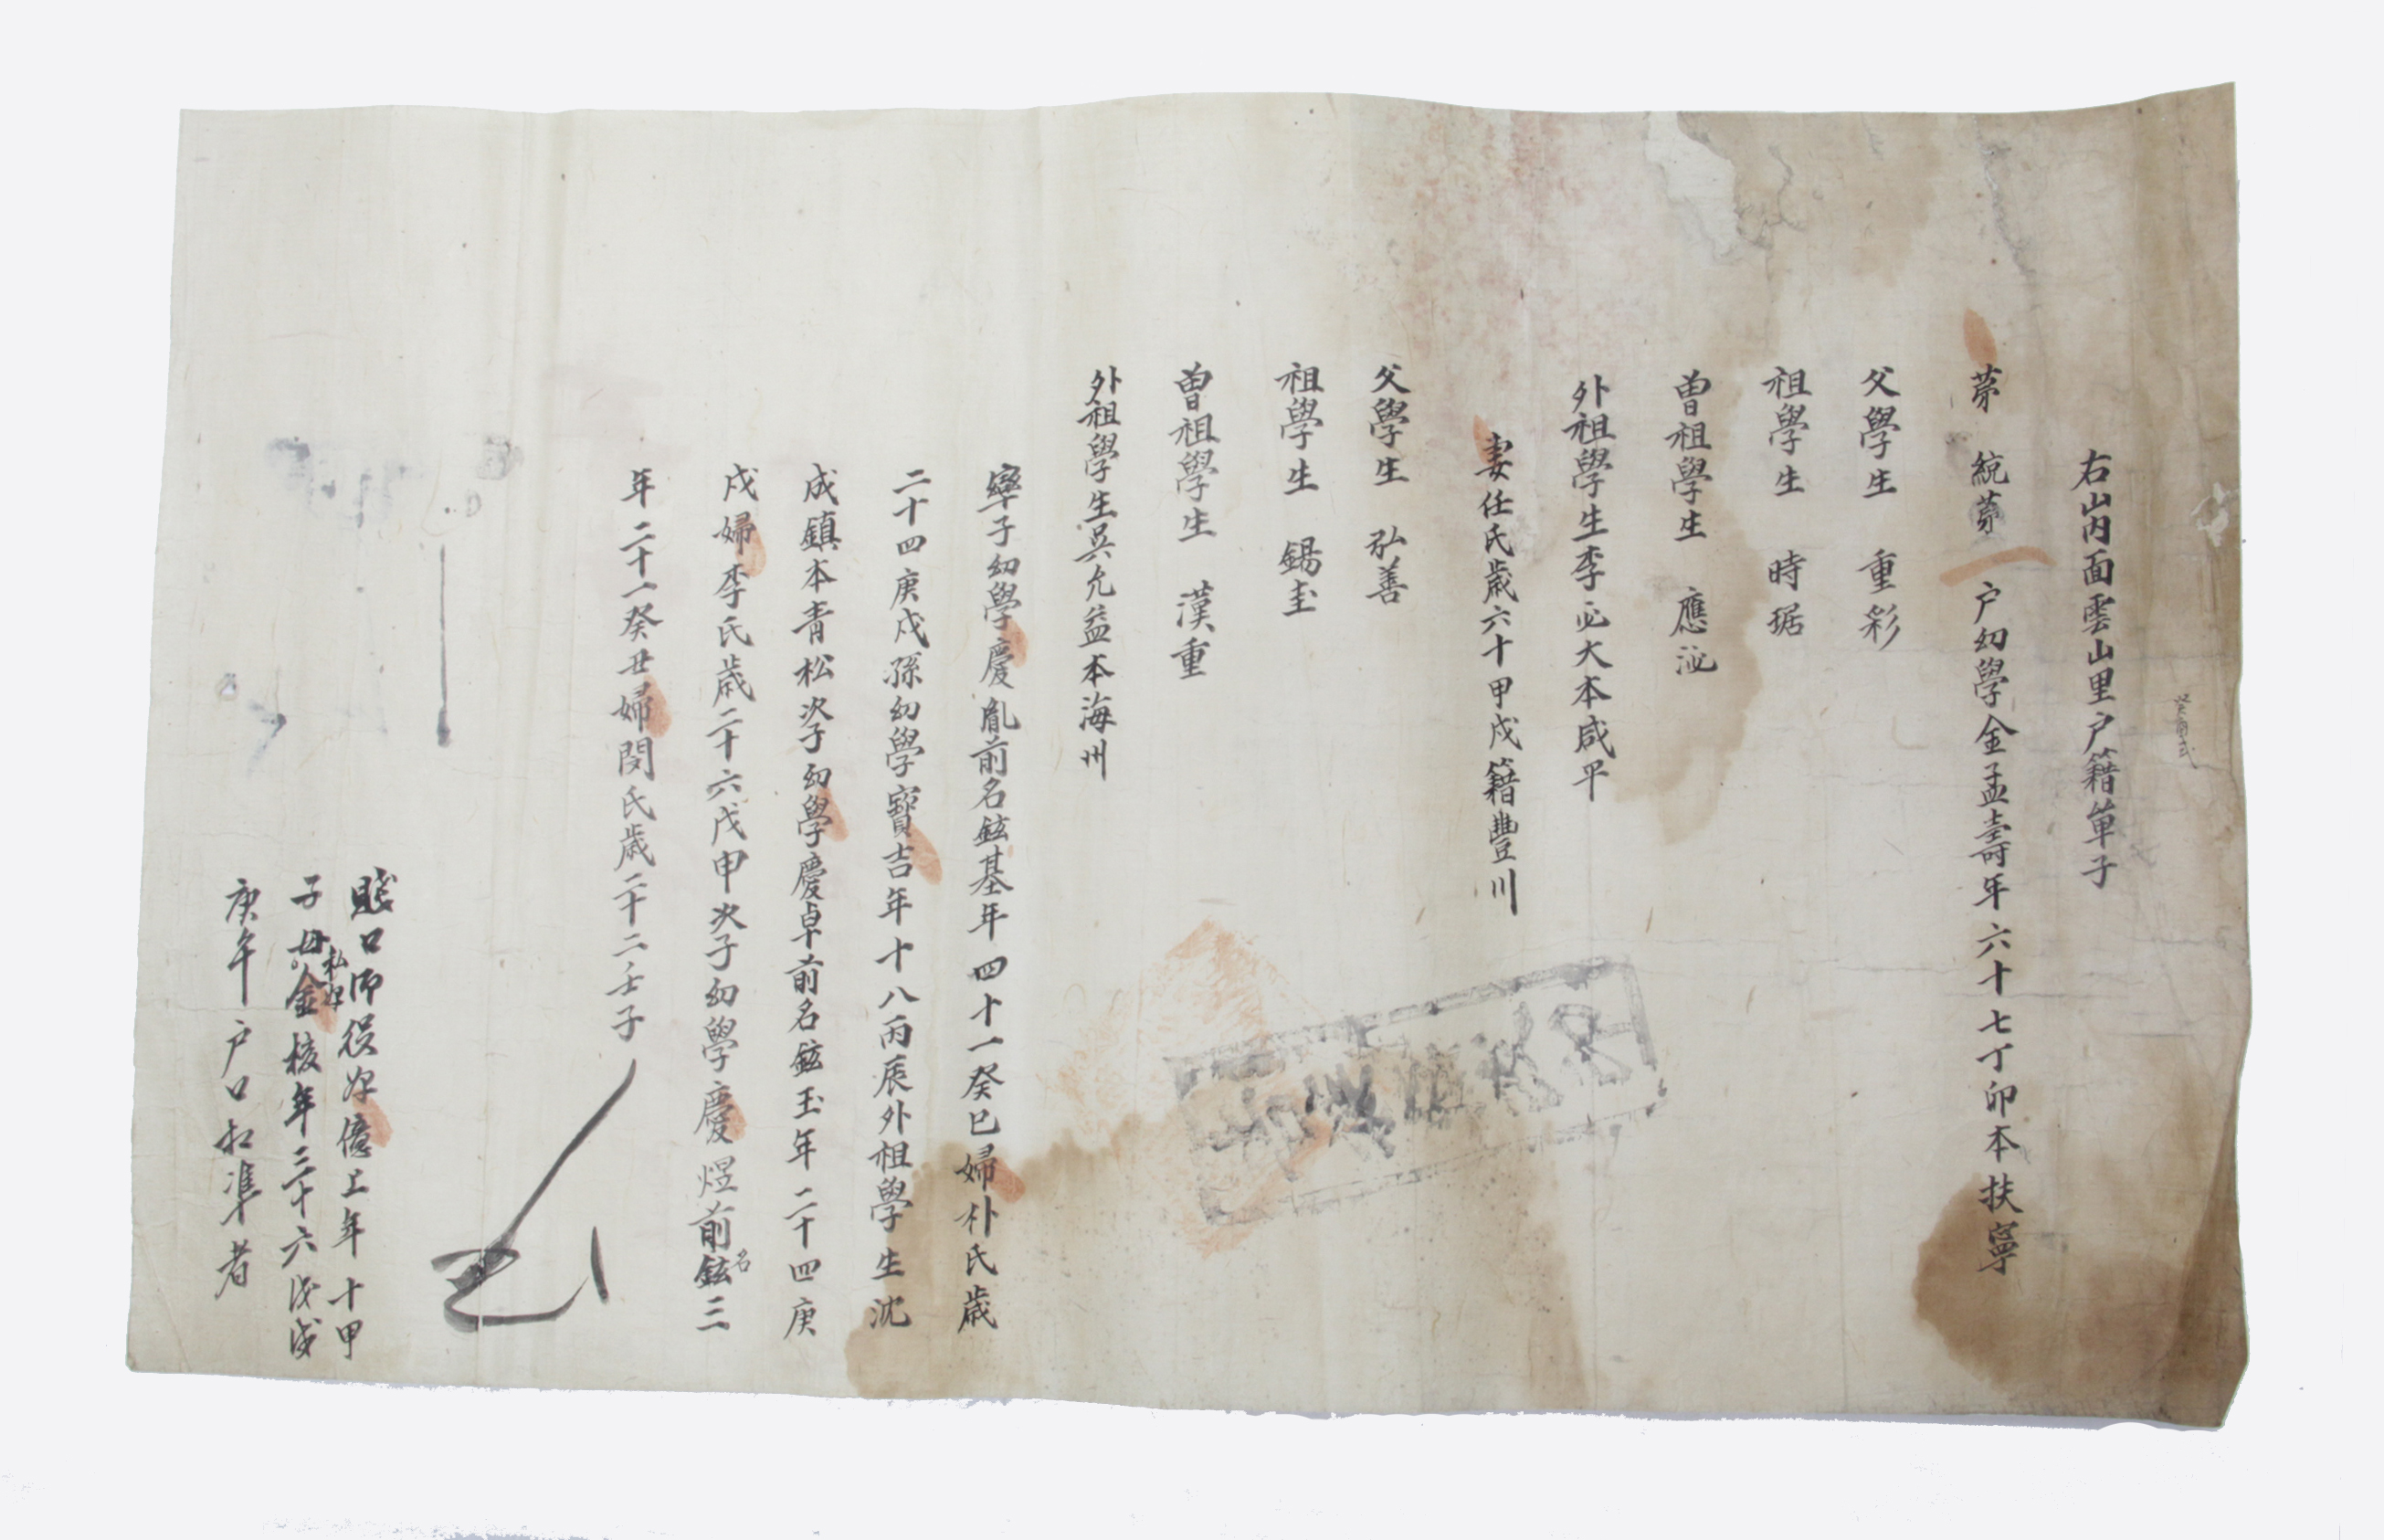 癸酉式
右山內面雲山里户籍单子
苐 統苐 户幼學金孟壽年六十七丁卯本扶寧
父學生 重彩
祖學生 時琚
曾祖學生 應泌
外祖學生李必大本咸平
妻任氏歲六十甲戌籍豊川
父學生 弘善
祖學生 錫圭
曾祖學生 漢重
外祖學生吳允益本海州
率子幼學慶胤前名鉉基年四十一癸巳婦朴氏歲
二十四庚戌孫幼學寶吉年十八丙辰外祖學生沈
成鎮本青松次子幼學慶卓前名鉉玉年二十四庚
戌婦李氏歲二十六戊申次子幼學慶煜前名鉉三
年二十一癸丑婦閔氏歲二十二壬子
賤口仰役婢億上年十甲
子母私婢金核年三十六戊戌
庚午户口相準者